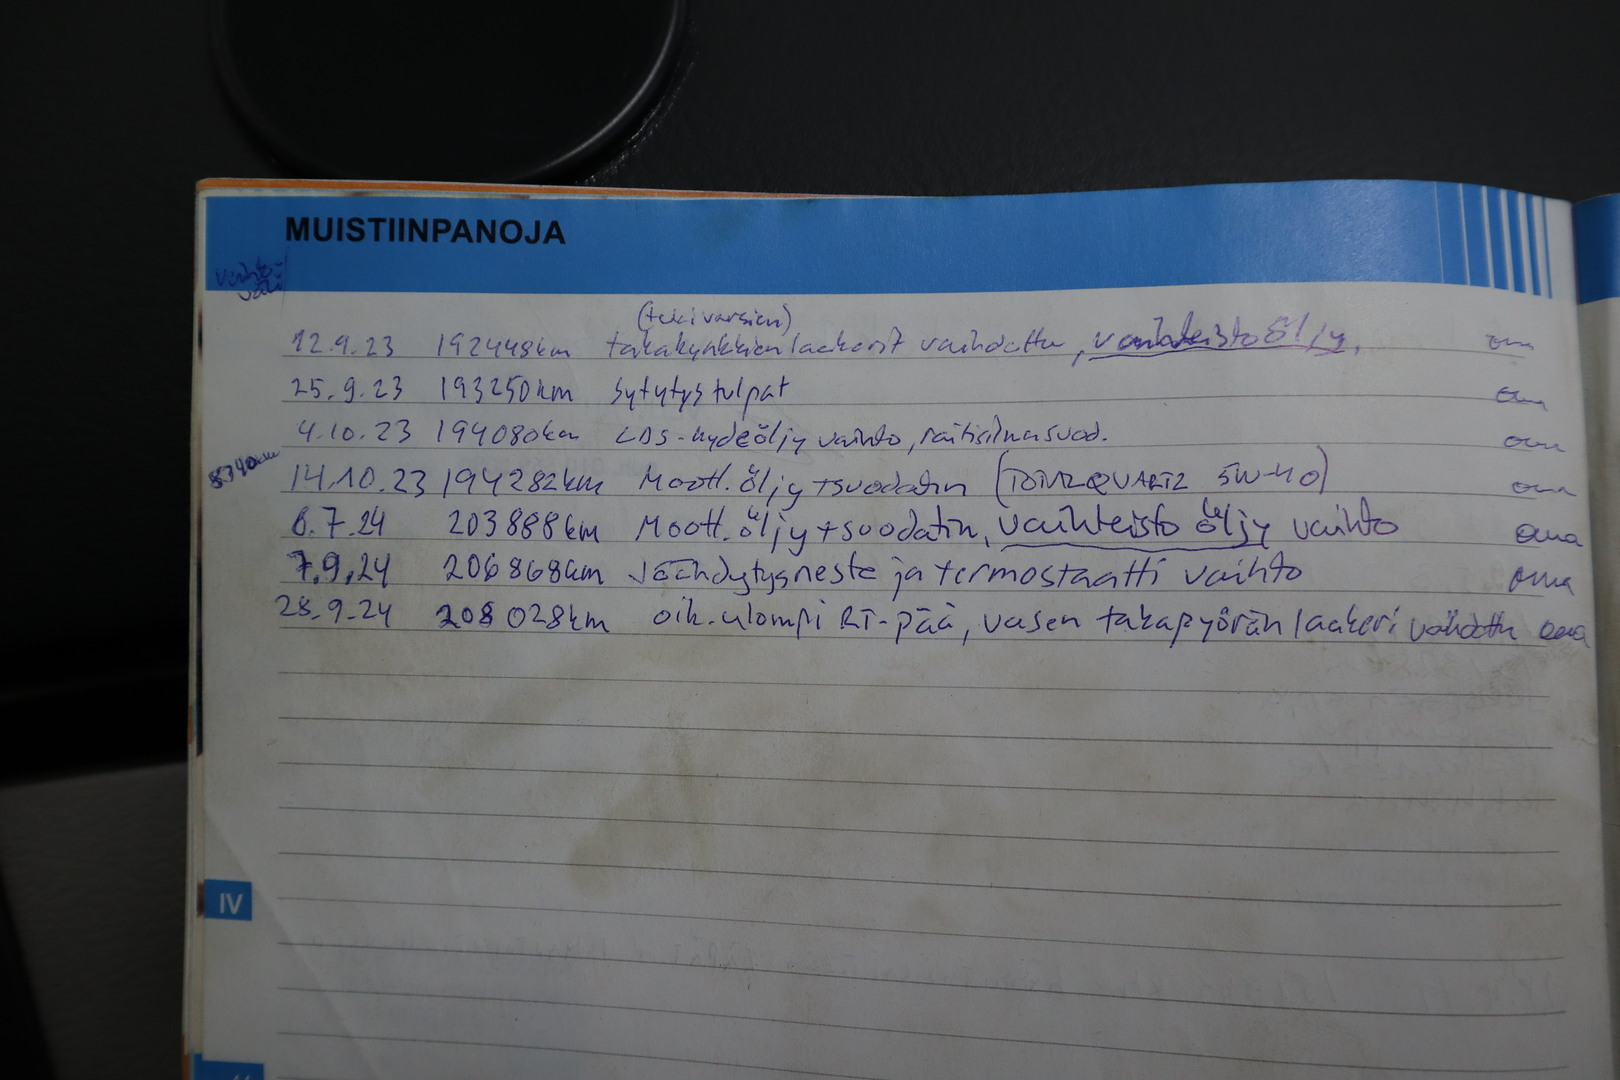 MUISTIINPANOJA
vaihto-
väli
(tukivarsien)
12.9.23 192448km takakynkkien laakerit vaihdattu, vaihteistoöljy, oma
25.9.23 193250km Sytytystulpat oma
4.10.23 194080km LDS-hydeöljy vaihto, raitisilmasuod. oma
8340km 14.10.23 194282km Moott.öljy+suodatin (TOTAL QUARTZ 5W-40) oma
6.7.24 203888km Moott.öljy+suodatin, vaihteisto öljy vaihto oma
7.9.24 206868km Jäähdytysneste ja termostaatti vaihto oma
28.9.24 208028km oik.ulompi RT-pää, vasen takapyörän laakeri vaihdattu oma
IV